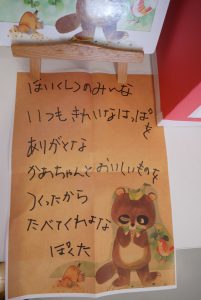 ほいくしつのみんな
いつもきれいなはっぱを
ありがとな
かあちゃんとおいしいものを
つくったから
たべてくれよな
ぽんた